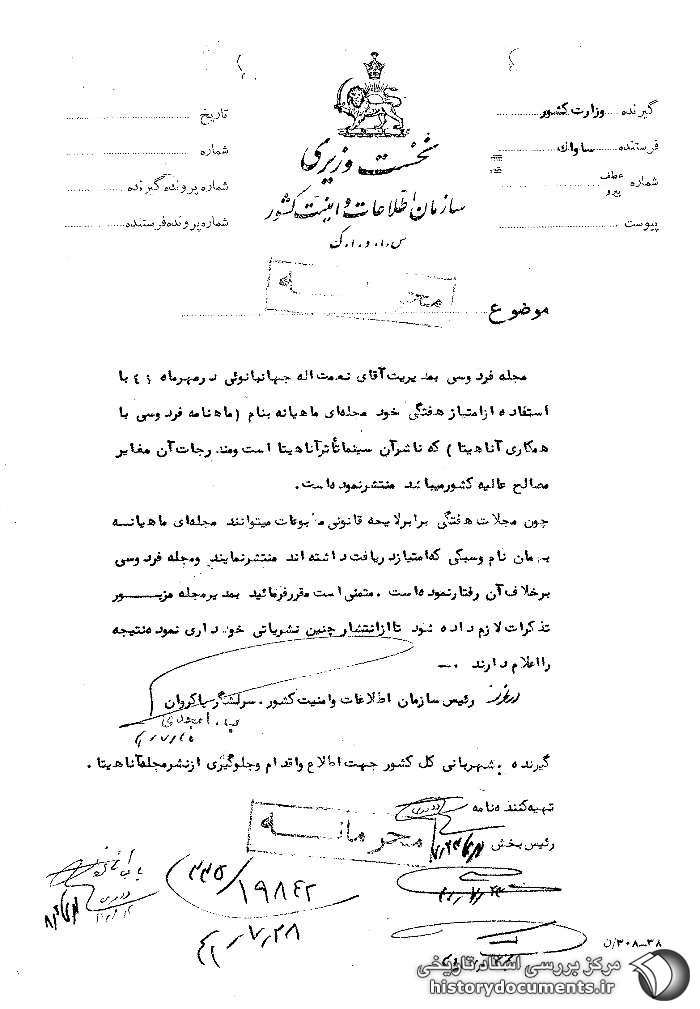 گیرنده وزارت کشور
فرستنده ساواک
شماره عطف پیرو
پیوست
نخست وزیری
سازمان اطلاعات و امنیت کشور
س.ا.و.ا.ک
تاریخ
شماره
شماره پرونده گیرنده
شماره پرونده فرستنده
محرمانه
موضوع
مجله فردوسی بمدیریت آقای نعمت اله جهانبانوئی در مهرماه ۴۱ با
استفاده از امتیاز هفتگی خود مجله‌ای ماهیانه بنام (ماهنامه فردوسی با
همکاری آناهیتا) که ناشر آن سینما تأتر آناهیتا است ومندرجات آن مغایر
مصالح عالیه کشور میباشد منتشر نموده است.
چون مجلات هفتگی برابر لایحه قانونی مطبوعات میتوانند مجله‌ای ماهیانه
بهمان نام وسبکی که امتیاز دریافت داشته اند منتشر نمایند ومجله فردوسی
برخلاف آن رفتار نموده است. متمنی است مقرر فرمائید بمدیر مجله مزبور
تذکرات لازم داده شود تا از انتشار چنین نشریاتی خودداری نموده نتیجه
را اعلام دارند.
رئیس سازمان اطلاعات وامنیت کشور. سرلشگر پاکروان
گیرنده شهربانی کل کشور جهت اطلاع واقدام وجلوگیری از نشر مجله آناهیتا.
تهیه کننده نامه
رئیس بخش
محرمانه
۳۳۵/۱۹۸۴۲
۴۱/۷/۲۸
۳۰۸-۳۸/ن
مرکز بررسی اسناد تاریخی
historydocuments.ir